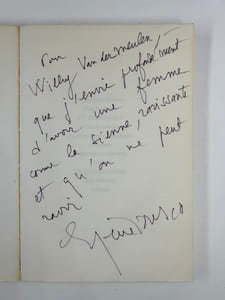 Pour
Willy Vandermeulen,
que j'envie profondément
d'avoir une femme
comme la sienne, ravissante
et qu'on ne peut
ravir